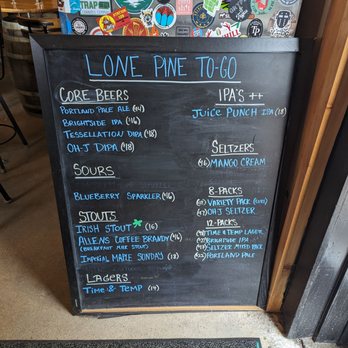 LONE PINE TO-GO
CORE BEERS
PORTLAND PALE ALE
BRIGHTSIDE IPA ($16)
TESSELLATION DIPA ($18)
OH-J DIPA ($18)
SOURS
BLUEBERRY SPARKLER ($16)
STOUTS
IRISH STOUT (16)
ALLENS COFFEE BRANDY ($16)
(BREAKFAST MILK STOUT)
IMPERIAL MAINE SUNDAY (18)
LAGERS
TIME & TEMP (14)
IPA'S ++
JUICE PUNCH IPA (18)
SELTZERS
($16) MANGO CREAM
8-PACKS
VARIETY PACK
OH-J SELTZER
12-PACKS
TIME & TEMP LAGER
BRIGHTSIDE IPA
SELTZER MIXED PACK
PORTLAND PALE